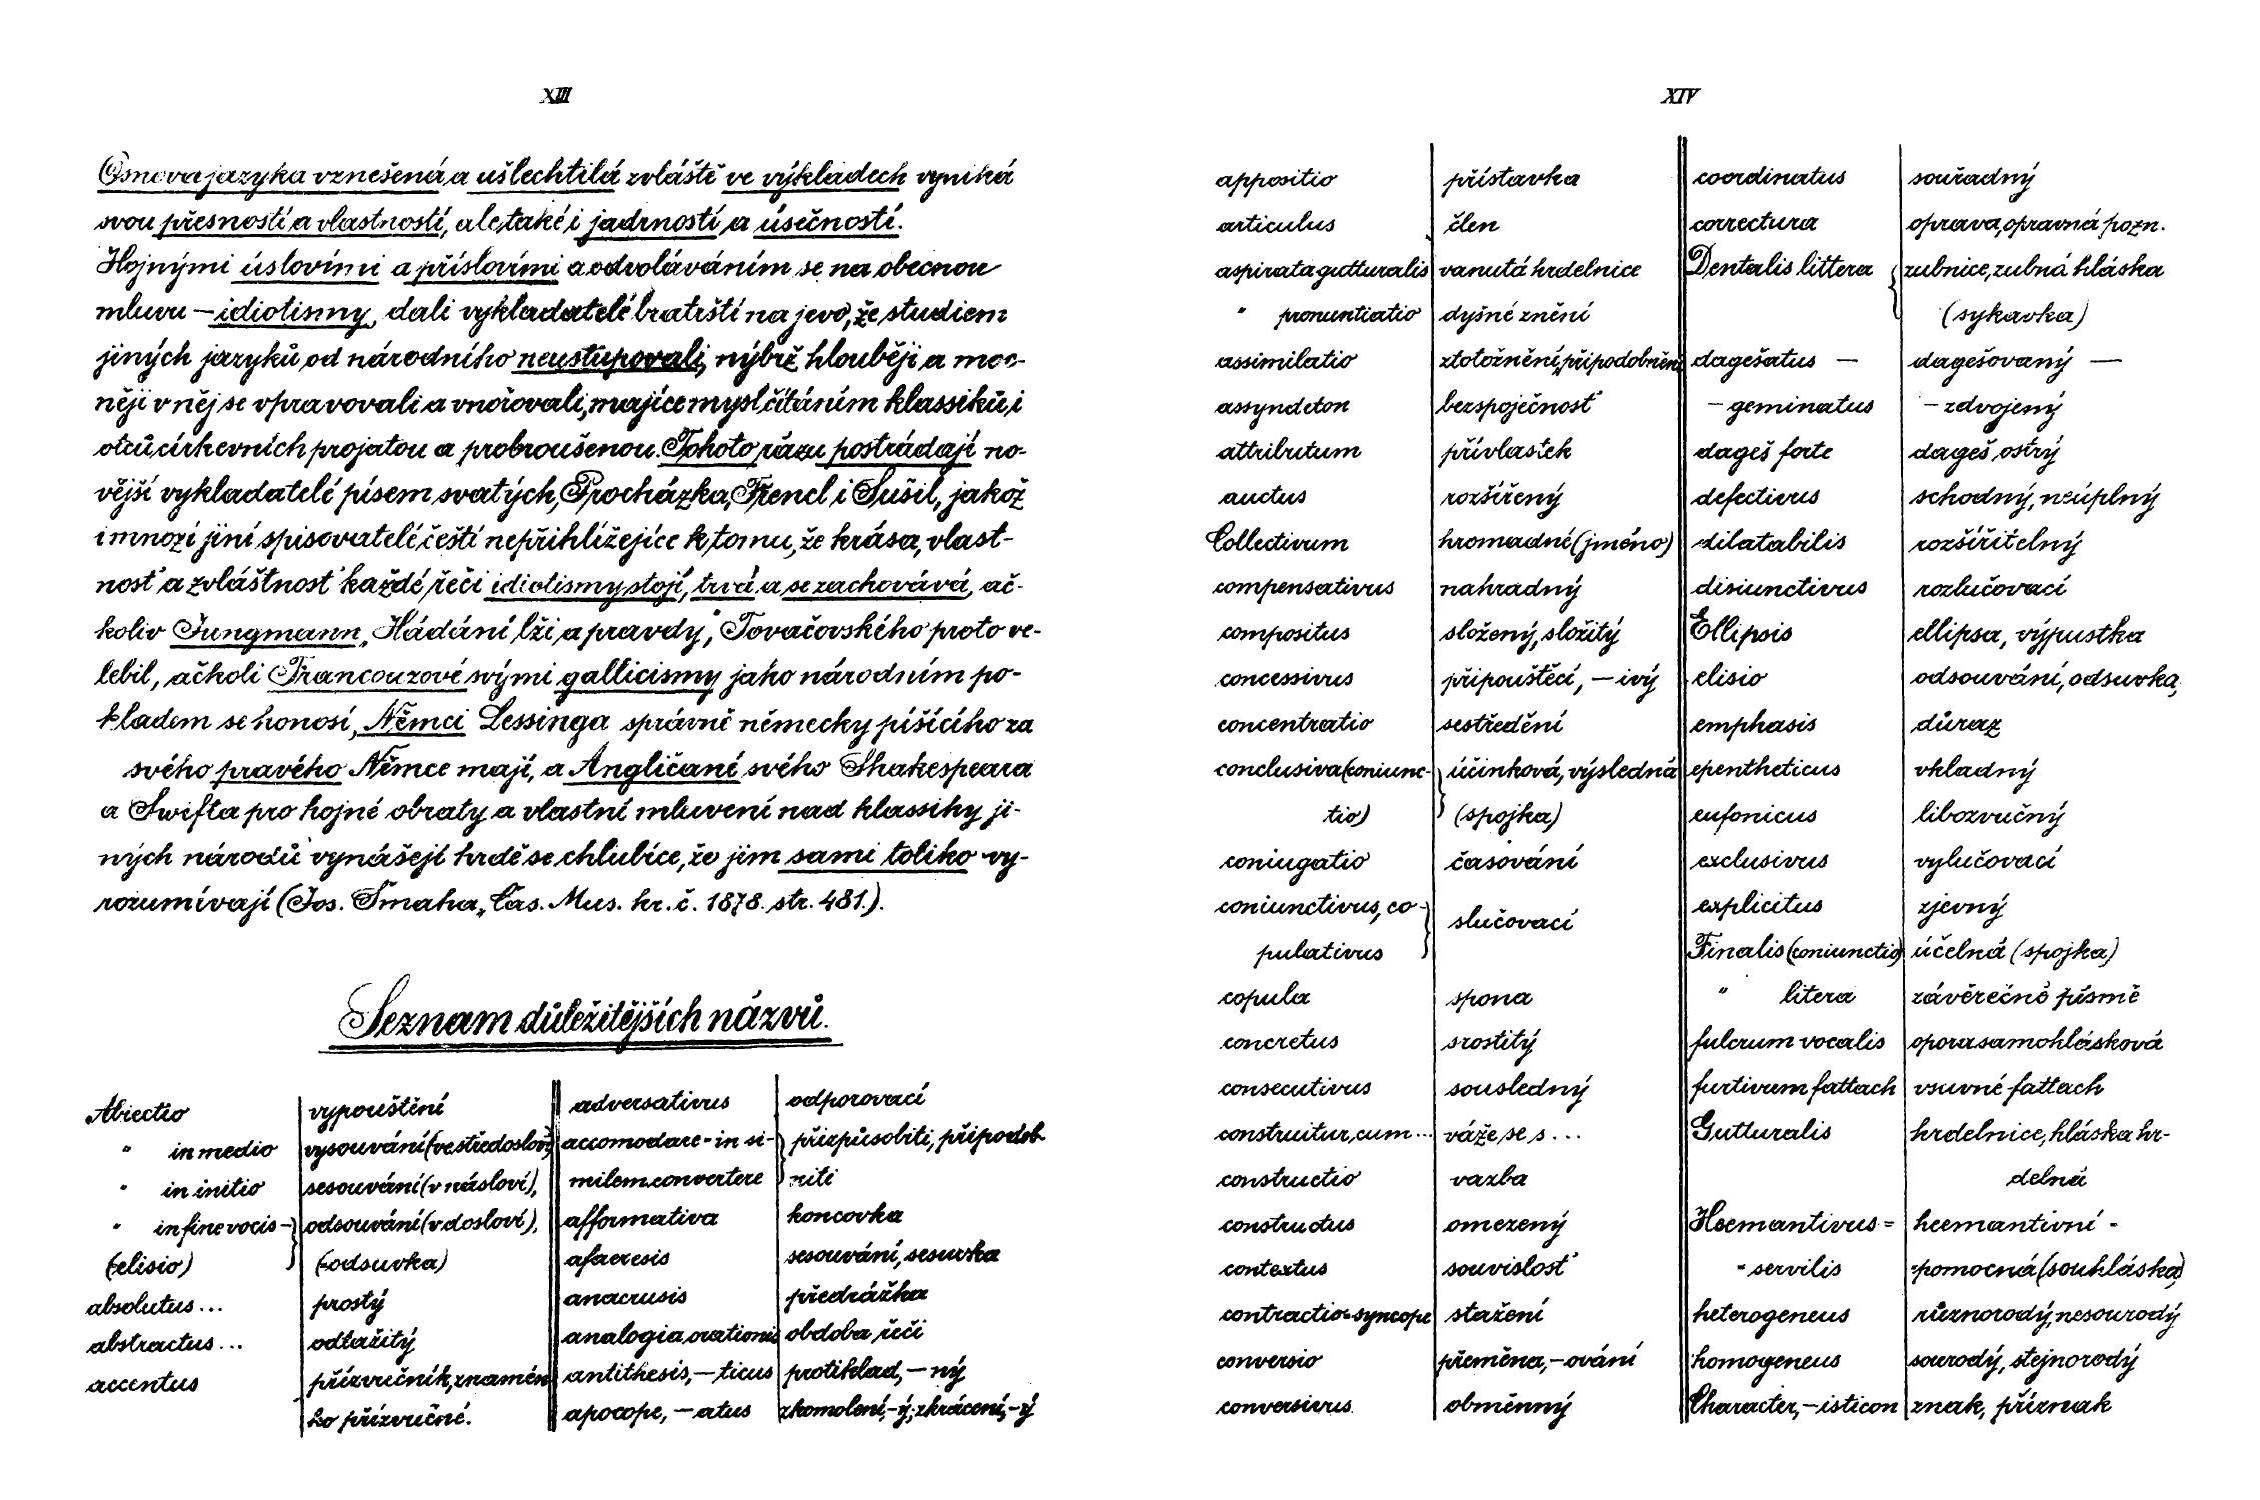 XIII
Osnova jazyka vznešená a ušlechtilá zvláště ve výkladech vyniká
svou přesností a vlastností, ale také i jadrností a úsečností.
Hojnými úslovími a příslovími a odvoláváním se na obecnou
mluvu — idiotismy, dali vykladatelé bratrští na jevo, že studiem
jiných jazyků od národního neustupovali, nýbrž hlouběji a moc-
něji v něj se vpravovali a vnořovali, majíce mysl čítáním klassiků i
otců církevních projatou a probroušenou. Tohoto rázu postrádají no-
vější vykladatelé písem svatých, Procházka, Frencl i Sušil, jakož
i mnozí jiní spisovatelé čeští nepřihlížejíce k tomu, že krása, vlast-
nosť a zvláštnosť každé řeči idiotismy stojí, trvá a se zachovává, ač-
koliv Jungmann „Hádání lži a pravdy" Tovačovského proto ve-
lebil, ačkoli Francouzové svými gallicismy jako národním po-
kladem se honosí, Němci Lessinga správně německy píšícího za
svého pravého Němce mají, a Angličané svého Shakespeara
a Swifta pro hojné obraty a vlastní mluvení nad klassiky ji-
ných národů vynášejí hrdě se chlubíce, že jim sami toliko vy-
rozumívají (Jos. Šmaha „Čas. Mus. kr. č. 1878. str. 481.).
Seznam důležitějších názvů.
Abiectio vypouštění
" in medio vysouvání (ve středosloví)
" in initio sesouvání (v násloví),
" in fine vocis - odsouvání (v dosloví),
(elisio) (-odsuvka)
absolutus... prostý
abstractus... odtažitý
accentus přízvučník, znamén-
ko přízvučné.
adversativus odporovací
accomodare - in si- přizpůsobiti, připodob-
milem convertere niti
afformativa koncovka
afaeresis sesouvání, sesuvka
anacrusis předrážka
analogia orationis obdoba řeči
antithesis, — ticus protiklad, — ný
apocope, — atus zkomolení, -ý; zkrácení, -ý
XIV
appositio přístavka
articulus člen
aspirata gutturalis vanutá hrdelnice
" pronuntiatio dyšné znění
assimilatio ztotožnění, připodobnění
assyndeton bezspoječnosť
attributum přívlastek
auctus rozšířený
Collectivum hromadné (jméno)
compensativus nahradný
compositus složený, složitý
concessivus připouštěcí, — ivý
concentratio sestředění
conclusiva (coniunc- účinková, výsledná
tio) (spojka)
coniugatio časování
coniunctivus, co- slučovací
pulativus
copula spona
concretus srostitý
consecutivus sousledný
construitur, cum... váže se s...
constructio vazba
constructus omezený
contextus souvislosť
contractio=syncope stažení
conversio přeměna, -ování
conversivus obměnný
coordinatus souřadný
correctura oprava, opravná pozn.
Dentalis littera zubnice, zubná hláska
(sykavka)
dagešatus — dagešovaný —
- geminatus - zdvojený
dageš forte dageš ostrý
defectivus schodný, neúplný
dilatabilis rozšířitelný
disiunctivus rozlučovací
Ellipsis ellipsa, výpustka
elisio odsouvání, odsuvka,
emphasis důraz
epentheticus vkladný
eufonicus libozvučný
exclusivus vylučovací
explicitus zjevný
Finalis (coniunctio) účelná (spojka)
" litera závěrečné písmě
fulcrum vocalis opora samohlásková
furtivum fattach vsuvné fattach
Gutturalis hrdelnice, hláska hr-
delná
Heemantivus = heemantivní -
- servilis -pomocná (souhláska)
heterogeneus různorodý, nesourodý
homogeneus sourodý, stejnorodý
Character, — isticon znak, příznak